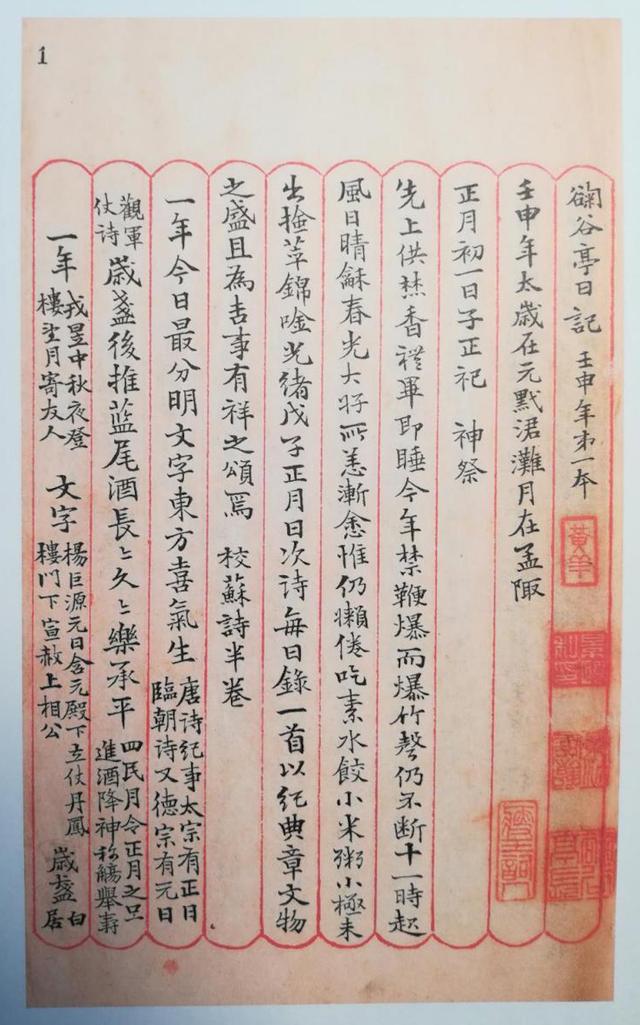 1
鞠谷亭日記 壬申年第一本
黃羊
壬申年太歲在元默涒灘月在孟陬
正月初一日子正祀 神祭
先上供焚香禮畢即睡今年禁鞭爆而爆竹聲仍不斷十一時起
風日晴龢春光大好所恙漸愈惟仍嬾倦吃素水餃小米粥小極未
出撿萃錦唫光緒戊子正月日次詩每日錄一首以紀典章文物
之盛且為吉事有祥之頌焉 校蘇詩半卷
一年今日最分明文字東方喜氣生 唐詩紀事太宗有正日
臨朝詩又德宗有元日
觀軍
仗詩 歲盞後推藍尾酒長〻久〻樂承平 四民月令正月之旦
進酒降神称觴舉壽
一年 戎昱中秋夜登
樓望月寄友人 文字 楊巨源元日含元殿下立仗丹鳳
樓門下宣赦上相公 歲盞 白
居